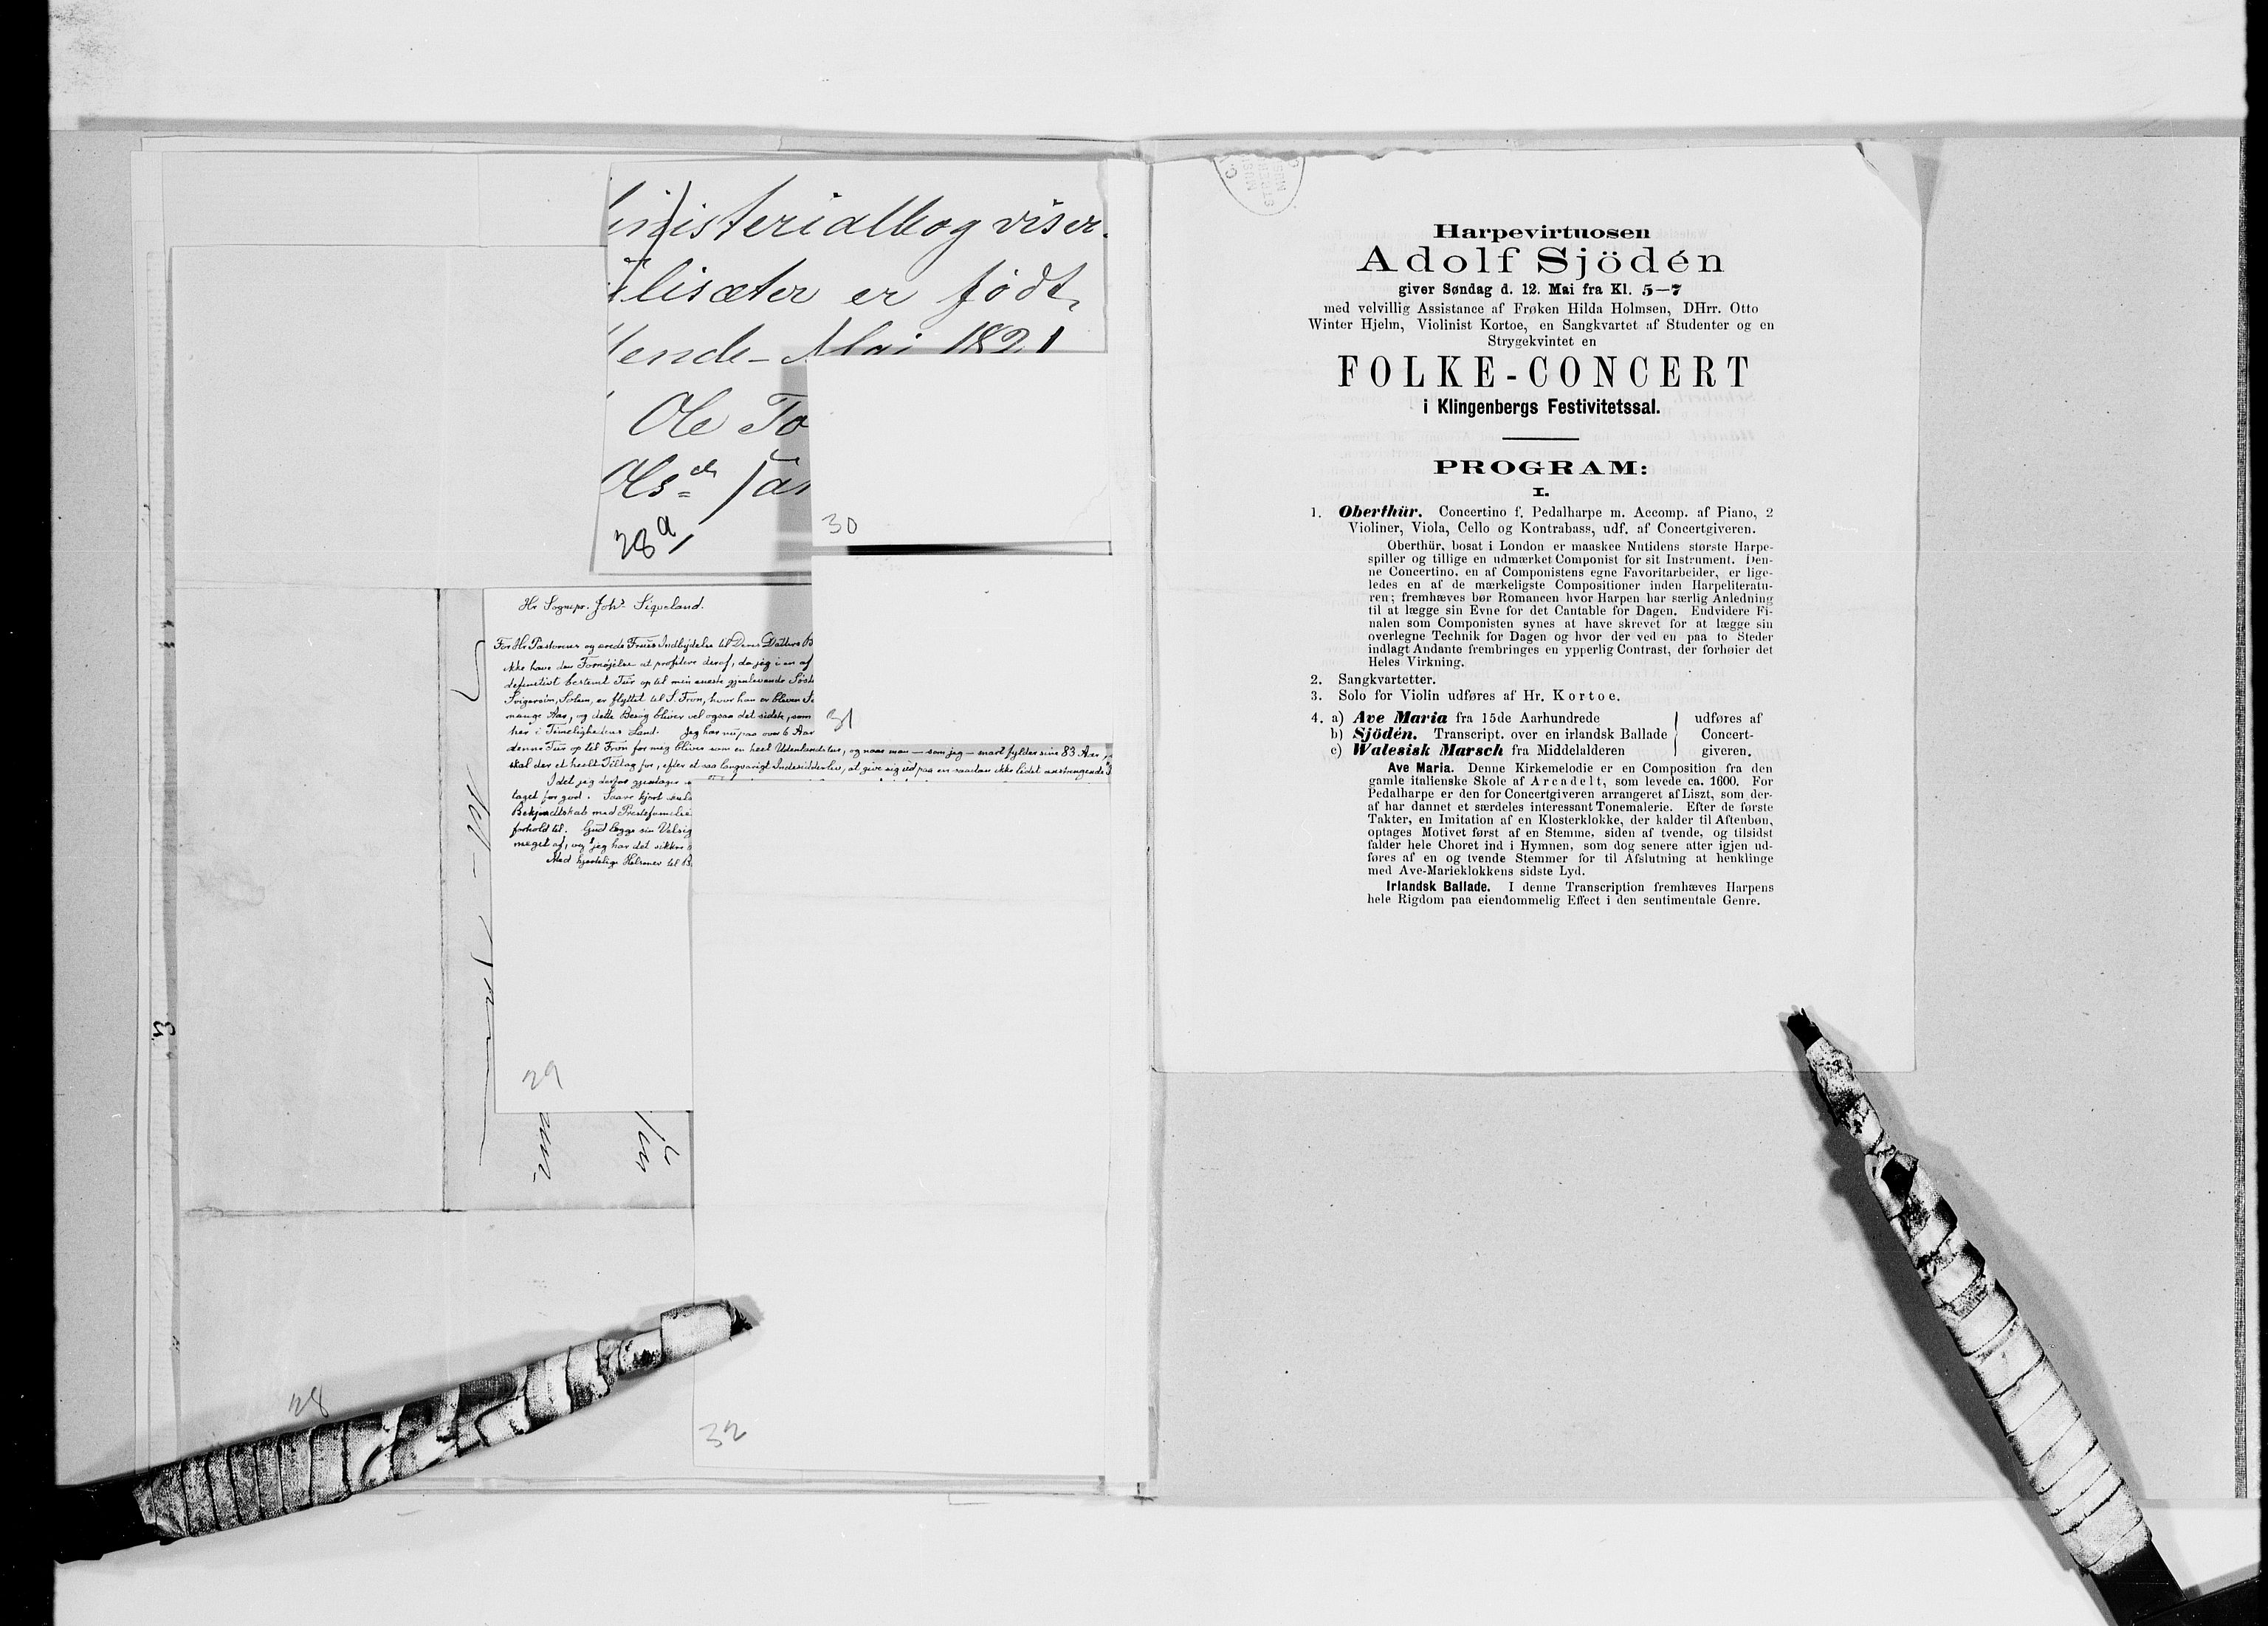 inisterialbog viser.
lisæter er født
ende Mai 1821
Ole To
Ols
28a
30
Hr Sognepr. Johs Siqveland.
For Hr Pastorens og ærede Frues Indbydelse til Deres Datters B
ikke have den Fornøjelse at profitere deraf, da jeg i en af
definitivt bestemt Tur op til min eneste gjenlevende Søst
Svigersøn, Solem, er flyttet til S. Fron, hvor han er bleven S
mange Aar, og dette Besøg bliver vel ogsaa det sidste, som
her i Timelighedens Land. Jeg har nu paa over 6 Aar
denne Tur op til Fron for mig bliver som en heel Udenlandstur, og naar man — som jeg — snart fylder sine 83 Aar,
skal der et heelt Tiltag for, efter et saa langvarigt Indesidderliv, at give sig ud paa en saadan ikke lidet anstrengende
Idet jeg derfor gjentager
taget for god.
Bekjendtskab med Præstefamilie
forhold til. Gud lægge sin Velsig
meget af, og jeg har det sikkre
Med hjertelige Hilsener til
31
29
32
28
3.
Harpevirtuosen
Adolf Sjödén
giver Søndag d. 12. Mai fra Kl. 5—7
med velvillig Assistance af Frøken Hilda Holmsen, DHrr. Otto
Winter Hjelm, Violinist Kortoe, en Sangkvartet af Studenter og en
Strygekvintet en
FOLKE-CONCERT
i Klingenbergs Festivitetssal.
PROGRAM:
I.
1. Oberthür. Concertino f. Pedalharpe m. Accomp. af Piano, 2
Violiner, Viola, Cello og Kontrabass, udf. af Concertgiveren.
Oberthür, bosat i London er maaskee Nutidens største Harpe-
spiller og tillige en udmærket Componist for sit Instrument. Den-
ne Concertino, en af Componistens egne Favoritarbeider, er lige-
ledes en af de mærkeligste Compositioner inden Harpeliteratu-
ren; fremhæves bør Romancen hvor Harpen har særlig Anledning
til at lægge sin Evne for det Cantable for Dagen. Endvidere Fi-
nalen som Componisten synes at have skrevet for at lægge sin
overlegne Technik for Dagen og hvor der ved en paa to Steder
indlagt Andante frembringes en ypperlig Contrast, der forhøier det
Heles Virkning.
2. Sangkvartetter.
3. Solo for Violin udføres af Hr. Kortoe.
4. a) Ave Maria fra 15de Aarhundrede
b) Sjödén. Transcript. over en irlandsk Ballade
c) Walesisk Marsch fra Middelalderen
udføres af
Concert-
giveren.
Ave Maria. Denne Kirkemelodie er en Composition fra den
gamle italienske Skole af Arcadelt, som levede ca. 1600. For
Pedalharpe er den for Concertgiveren arrangeret af Liszt, som der-
af har dannet et særdeles interessant Tonemalerie. Efter de første
Takter, en Imitation af en Klosterklokke, der kalder til Aftenbøn,
optages Motivet først af en Stemme, siden af tvende, og tilsidst
falder hele Choret ind i Hymnen, som dog senere atter igjen ud-
føres af en og tvende Stemmer for til Afslutning at henklinge
med Ave-Marieklokkens sidste Lyd.
Irlandsk Ballade. I denne Transcription fremhæves Harpens
hele Rigdom paa eiendommelig Effect i den sentimentale Genre.